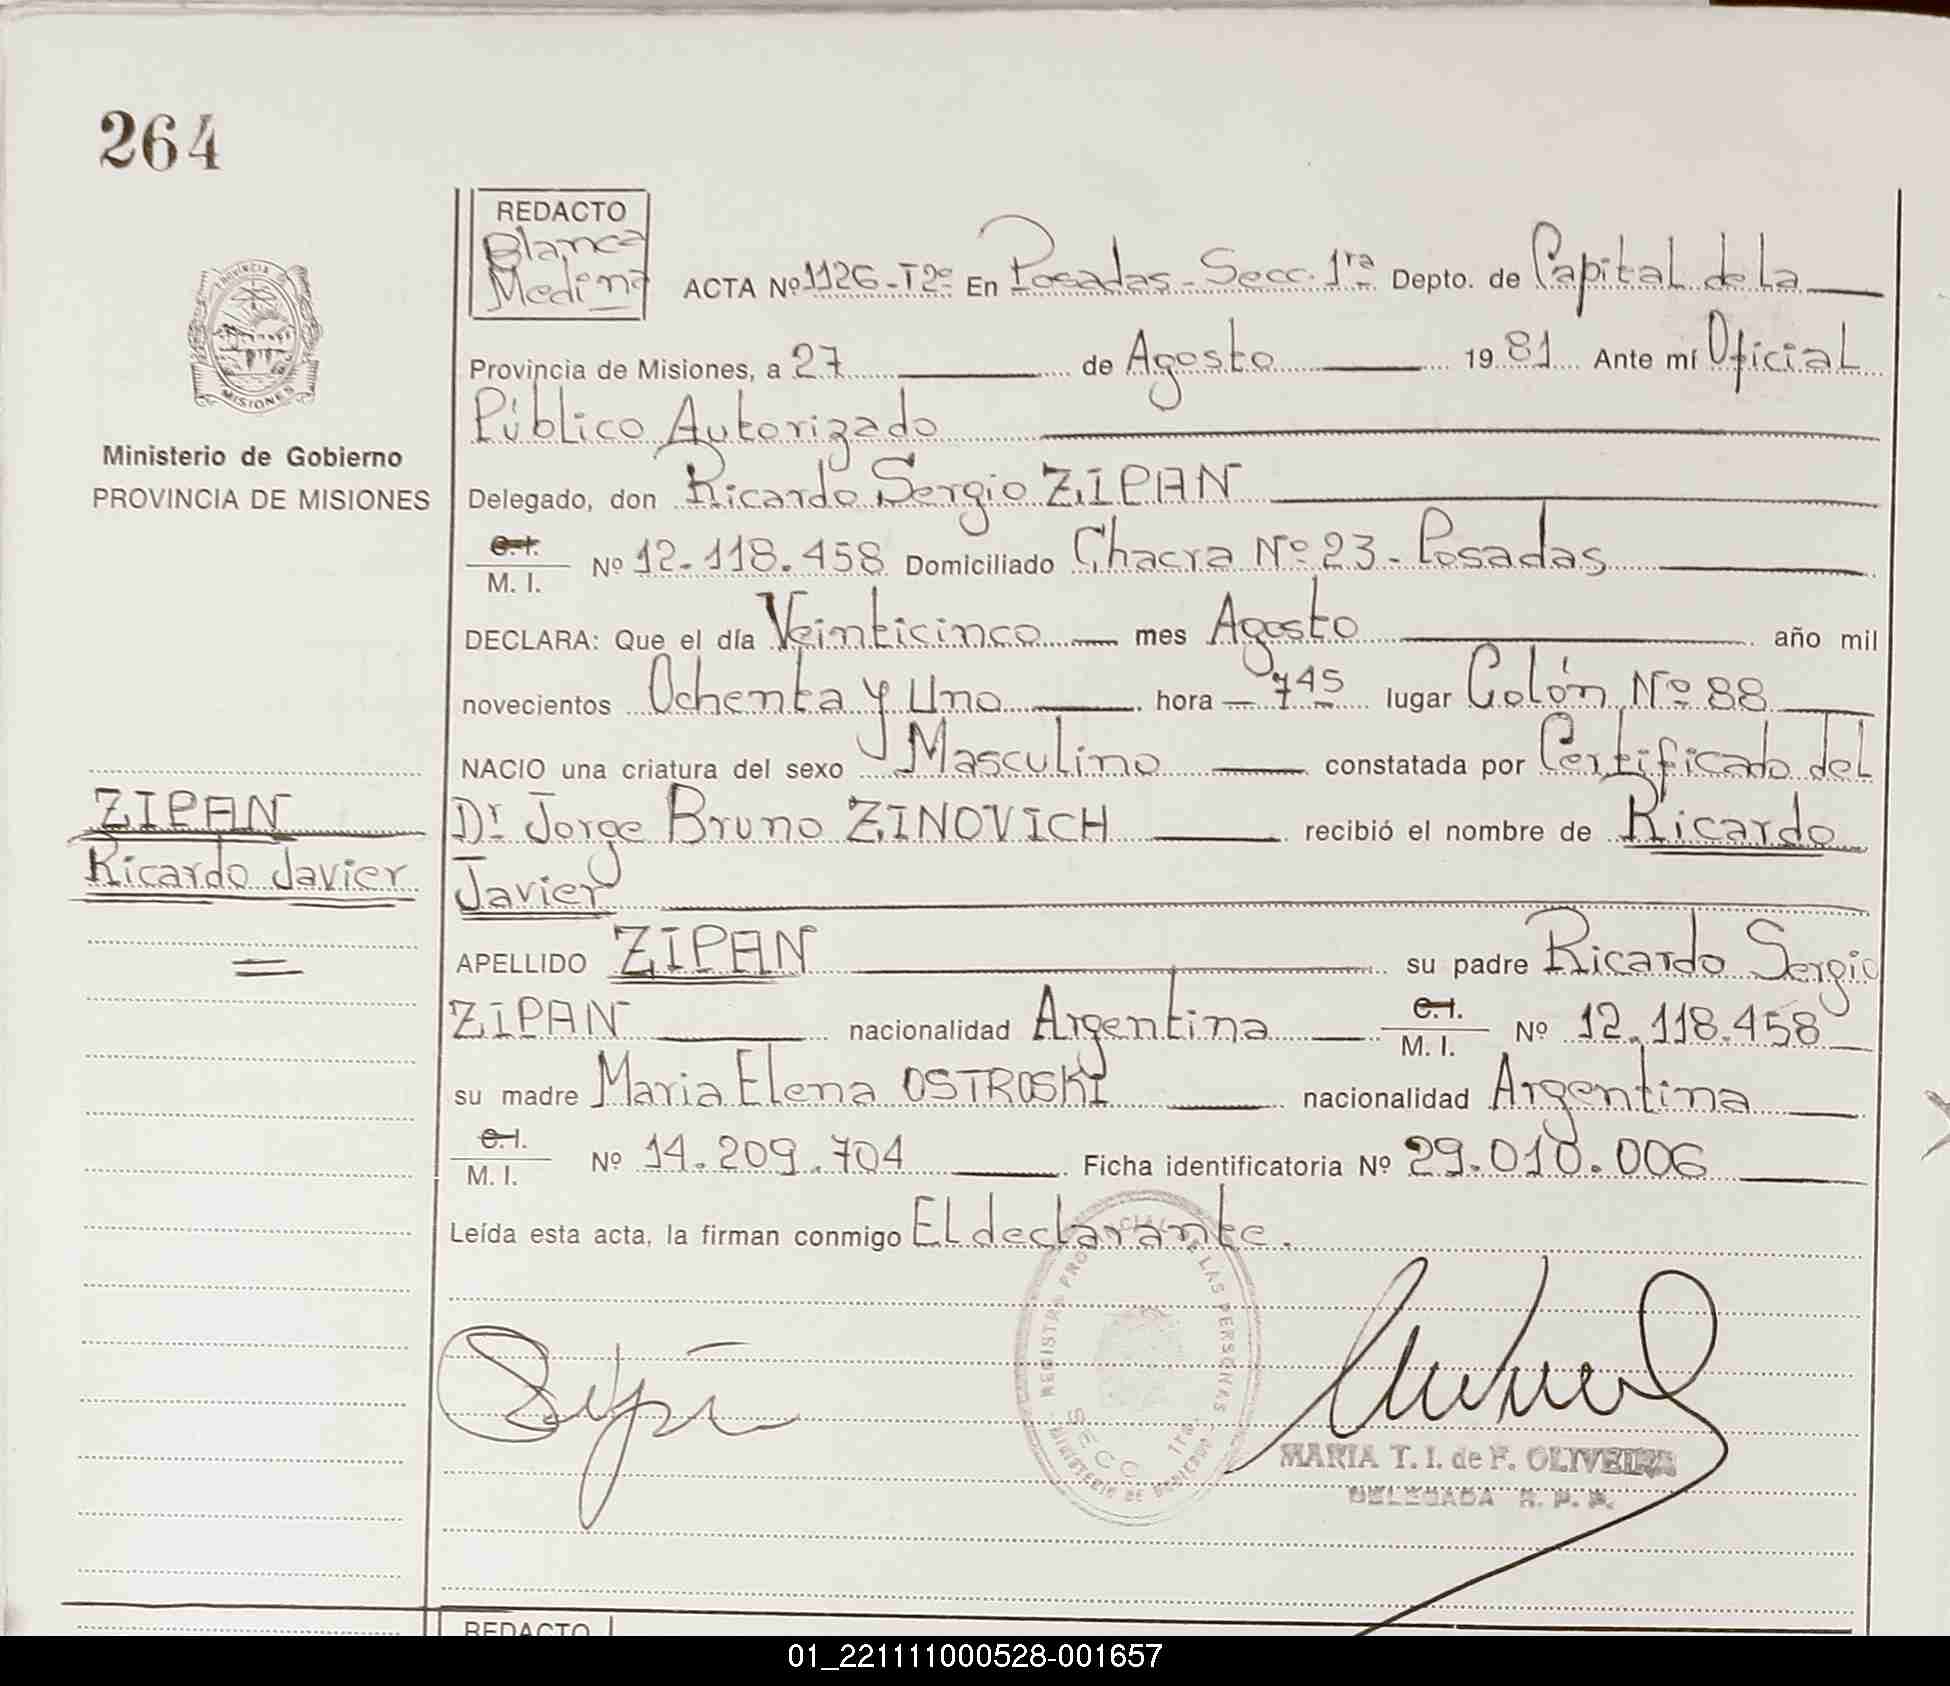 264
REDACTO
Blanca
Medina
ACTA Nº 1126-T2º En Posadas - Secc. 1ra Depto. de Capital de la
Provincia de Misiones, a 27 de Agosto 1981 Ante mí Oficial
Público Autorizado
Delegado, don Ricardo Sergio ZIPAN
C.I.
M. I. Nº 12.118.458 Domiciliado Chacra Nº 23 - Posadas
DECLARA: Que el día Veinticinco mes Agosto año mil
novecientos Ochenta y Uno hora 745 lugar Colón Nº 88
NACIO una criatura del sexo Masculino constatada por Certificado del
Dr Jorge Bruno ZINOVICH recibió el nombre de Ricardo
Javier
APELLIDO ZIPAN su padre Ricardo Sergio
ZIPAN nacionalidad Argentina C.I. M. I. Nº 12.118.458
su madre Maria Elena OSTROSKI nacionalidad Argentina
C.I.
M. I. Nº 14.209.704 Ficha identificatoria Nº 29.010.006
Leída esta acta, la firman conmigo El declarante.
PROVINCIA
MISIONES
Ministerio de Gobierno
PROVINCIA DE MISIONES
ZIPAN
Ricardo Javier
DE LAS PERSONAS
MINISTERIO DE GOBIERNO
SECC 1ra
MARIA T. I. de F. OLIVEIRA
DELEGADA R. P. P.
REDACTO
01_221111000528-001657